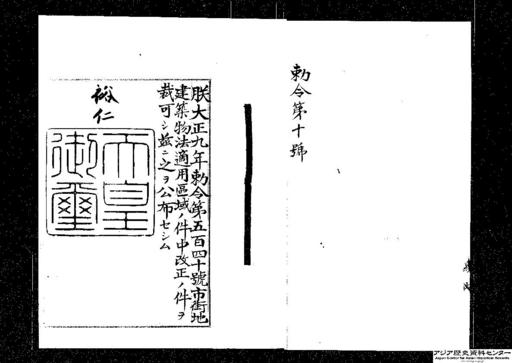 勅令第十號
朕大正九年勅令第五百四十號市街地
建築物法適用區域ノ件中改正ノ件ヲ
裁可シ茲ニ之ヲ公布セシム
裕仁
天皇
御璽
アジア歴史資料センター
Japan Center for Asian Historical Records